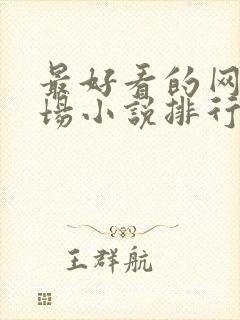 最好看的网
場小説排行
王群航